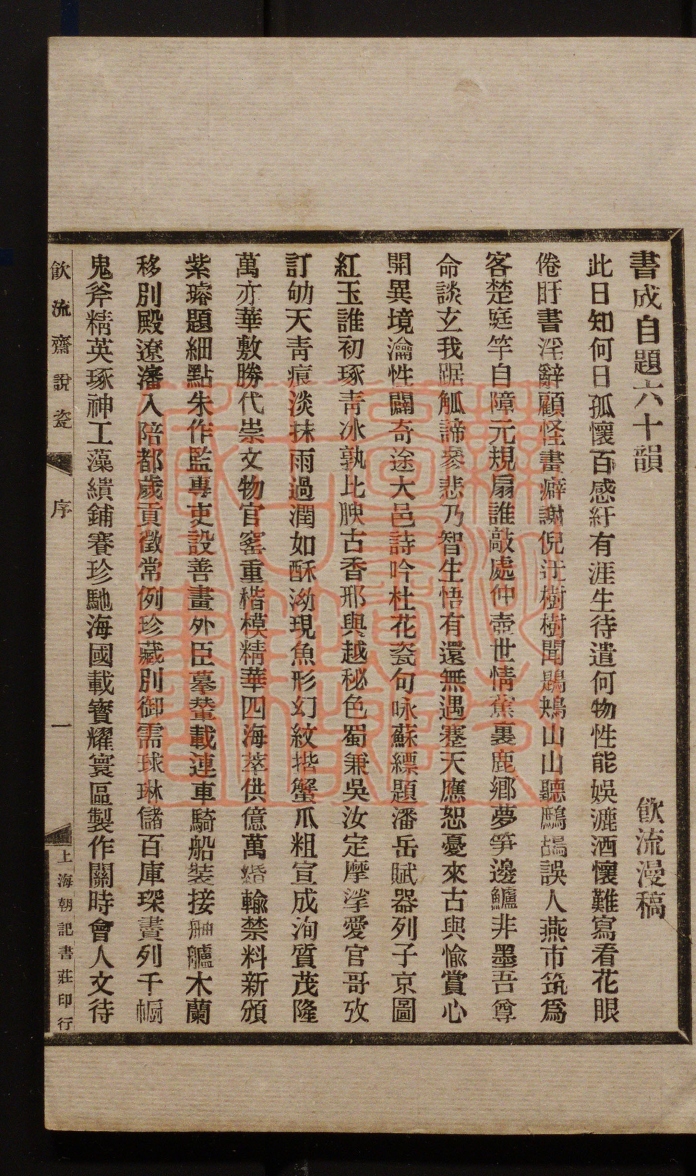 書成自題六十韻 飮流漫稿
此日知何日孤懷百感紆有涯生待遣何物性能娛漉酒懷難寫看花眼
倦盱書淫辭顧怪畫癖謝倪迂樹樹聞鵾鴂山山聽鷓鴣誤人燕市筑爲
客楚庭竽自障元規扇誰敲處仲壺世情蕉裏鹿鄉夢笋邊鱸非墨吾尊
命談玄我踞觚諦參悲乃智生悟有還無遇蹇天應恕憂來古與愉賞心
開異境瀹性闢奇途大邑詩吟杜花瓷句咏蘇縹題潘岳賦器列子京圖
紅玉誰初琢靑冰孰比腴古香邢與越秘色蜀兼吳汝定摩挲愛官哥攷
訂劬天靑痕淡抹雨過潤如酥泑現魚形幻紋揩蟹爪粗宣成洵質茂隆
萬亦華敷勝代崇文物官窰重楷模精華四海萃供億萬緡輸禁料新頒
紫璿題細點朱作監專吏設善畫外臣摹輦載連車騎船裝接舳艫木蘭
移別殿遼瀋入陪都歲貢徵常例珍藏別御需球琳儲百庫琛晝列千㡡
鬼斧精英琢神工藻繢鋪賽珍馳海國載寶耀寰區製作關時會人文待
飮流齋說瓷 序 一 上海朝記書莊印行